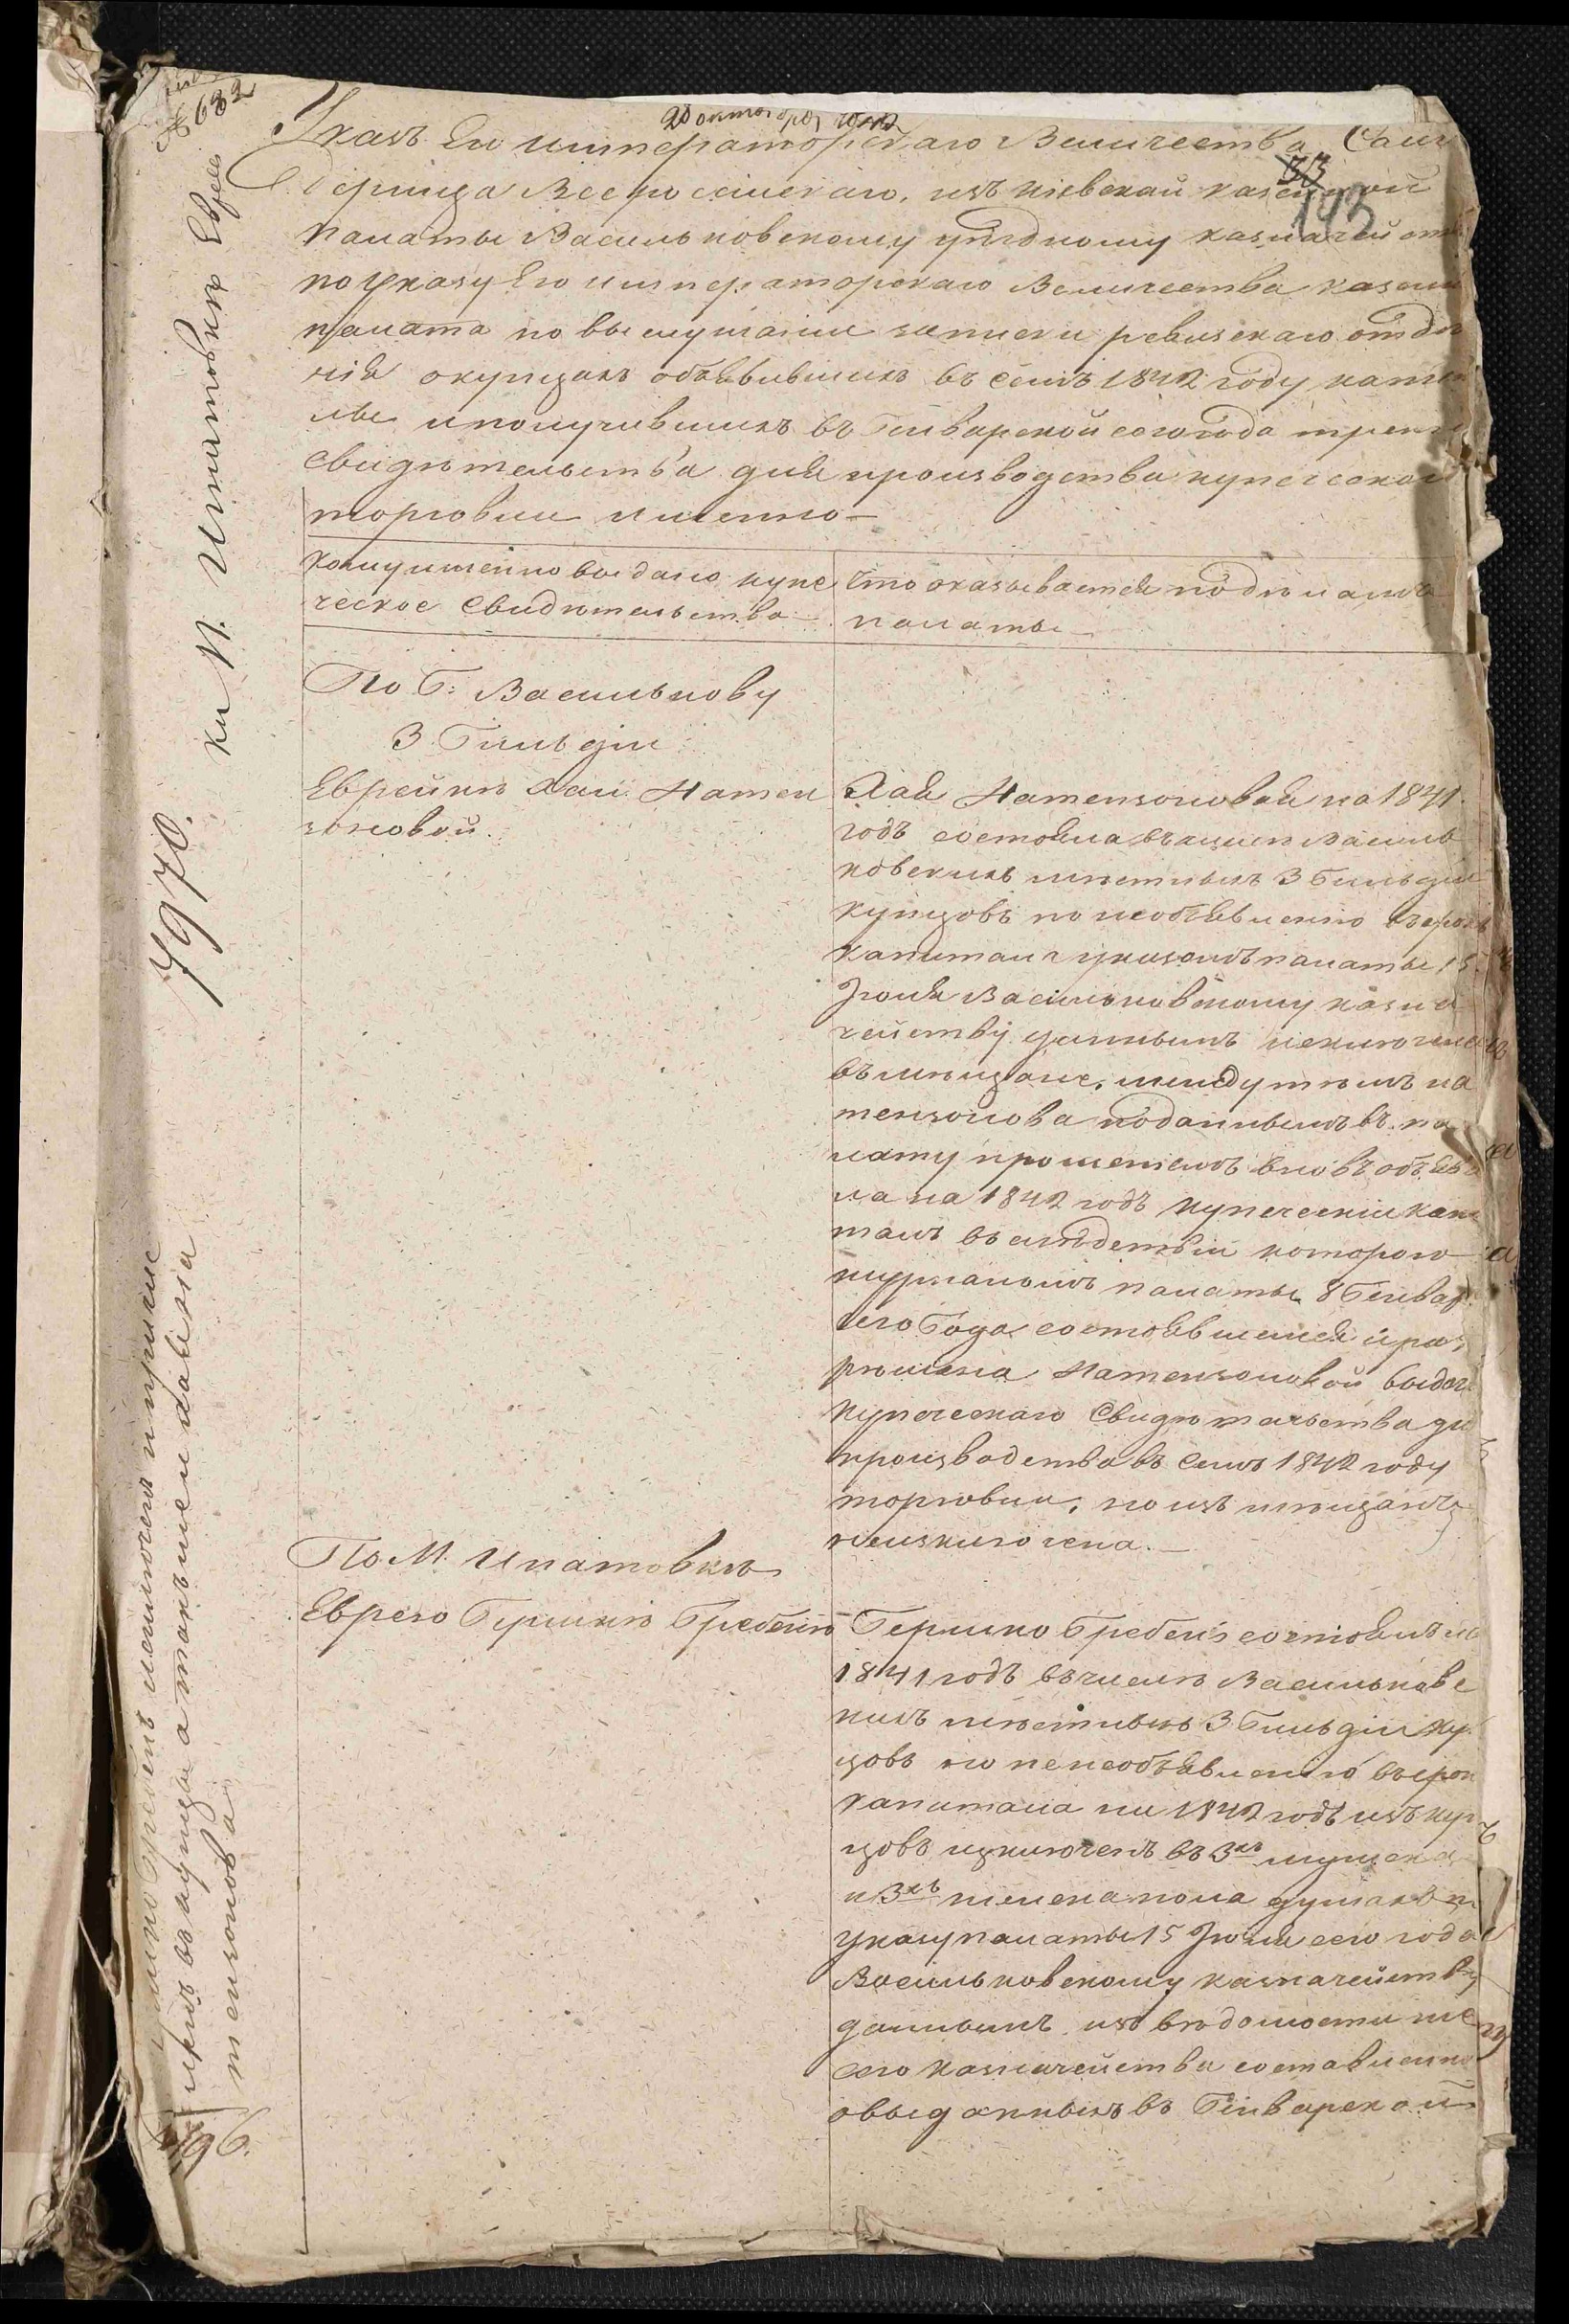 20 октября 1842
Указъ Его Императорскаго Величества Сам
Держца Всероссійскаго, изъ Кіевской казенной
33
193
палаты Васильковскому уѣздному казначейств
по указу Его Императорскаго Величества казенн
палата по выслушаніи записки ревизскаго отдѣл
нія окупцахъ объявившихъ въ семъ 1842 году капит
лы иполучившихъ въ Генварской сегогода трети
свидѣтельства для производства купеческой
торговли именно —
Комуименно выдано купе
ческое Свидѣтельство
Что оказывается подѣламъ
палаты
По Г: Василькову
3 Гильдіи
Еврейкѣ Хаи Натен
зоновой.
Хая Натензоновая на 1841
годъ состояла вчислѣ Василь
ковскихъ мѣстныхъ 3 Гильдіи
купцовъ по необъявленію всрокъ
капитала указомъ палаты 15
Іюля Васильковскому казна
чейству даннымъ исключена
въ мѣщане, между тѣмъ На
тензонова поданнымъ въ па
лату прошеніемъ вновь объяви
ла на 1842 годъ купеческій капи
талъ вслѣдствіи котораго
журналомъ палаты 8 Генвар
сего Года состоявшемся и раз
рѣшена Натензоновой выдача
купеческаго Свидѣтельства дл
производства въ семъ 1842 году
торговли, но изъ мѣщанъ
неизключена. —
По М. Ипатовкѣ
Еврею Гершкѣ Гребеню
Гершко Гребень состоялъ на
1841 годъ вчислѣ Васильковс
кихъ мѣстныхъ 3 Гильдіи куп
цовъ но понеобъявленію всрок
капитала на 1842 годъ изъ куп
цовъ изключенъ въ 3хъ мужска
и 3хъ женска пола душахъ п
указу палаты 15 Іюля сего года
Васильковскому казначейству
даннымъ изъ вѣдомости же
сего казначейства составленно
овыданныхъ въ Генварской
№ 682
ки М. Ипатовки Евреи
7970.
Гершко Гребень исключенъ
въ купцы а такъ же и Хавяна
тензонова
196.